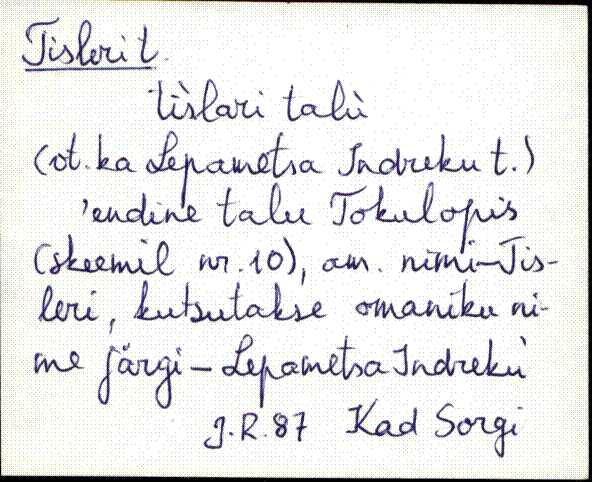 Tisleri t.
tìslari talù
(vt. ka Lepametsa Indreku t.)
'endine talu Tokulopis
(skeemil nr. 10), am. nimi–Tis-
leri, kutsutakse omaniku ni-
me järgi – Lepametsa Indrekù
J.R. 87 Kad Sorgi